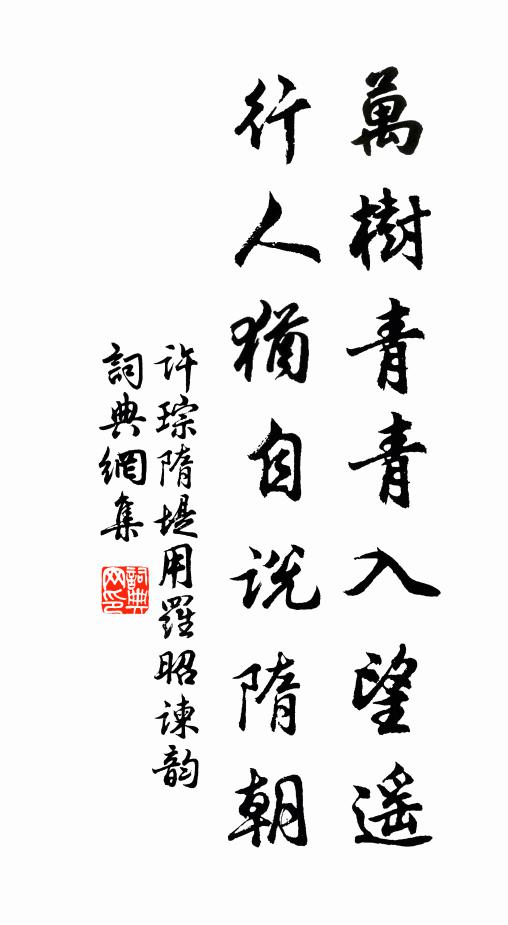 萬樹青青入望遥
行人猶自説隋朝
许琮隋堤用羅昭諫韵
詞典網集
詞典网印